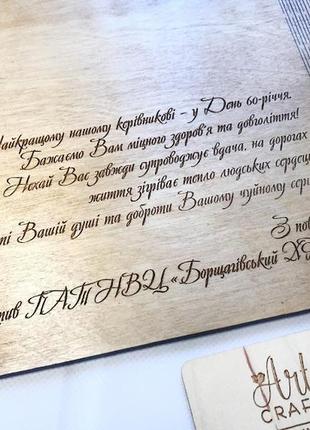 Найкращому нашому керівникові – у День 60-річчя.
Бажаємо Вам міцного здоров'я та довголіття!
Нехай Вас завжди супроводжує вдача, на дорогах
життя зігріває тепло людських сердець
Вашій душі та доброти Вашому чуйному
З
ПАТ НВЦ «Борщагівський
Art
CRAF